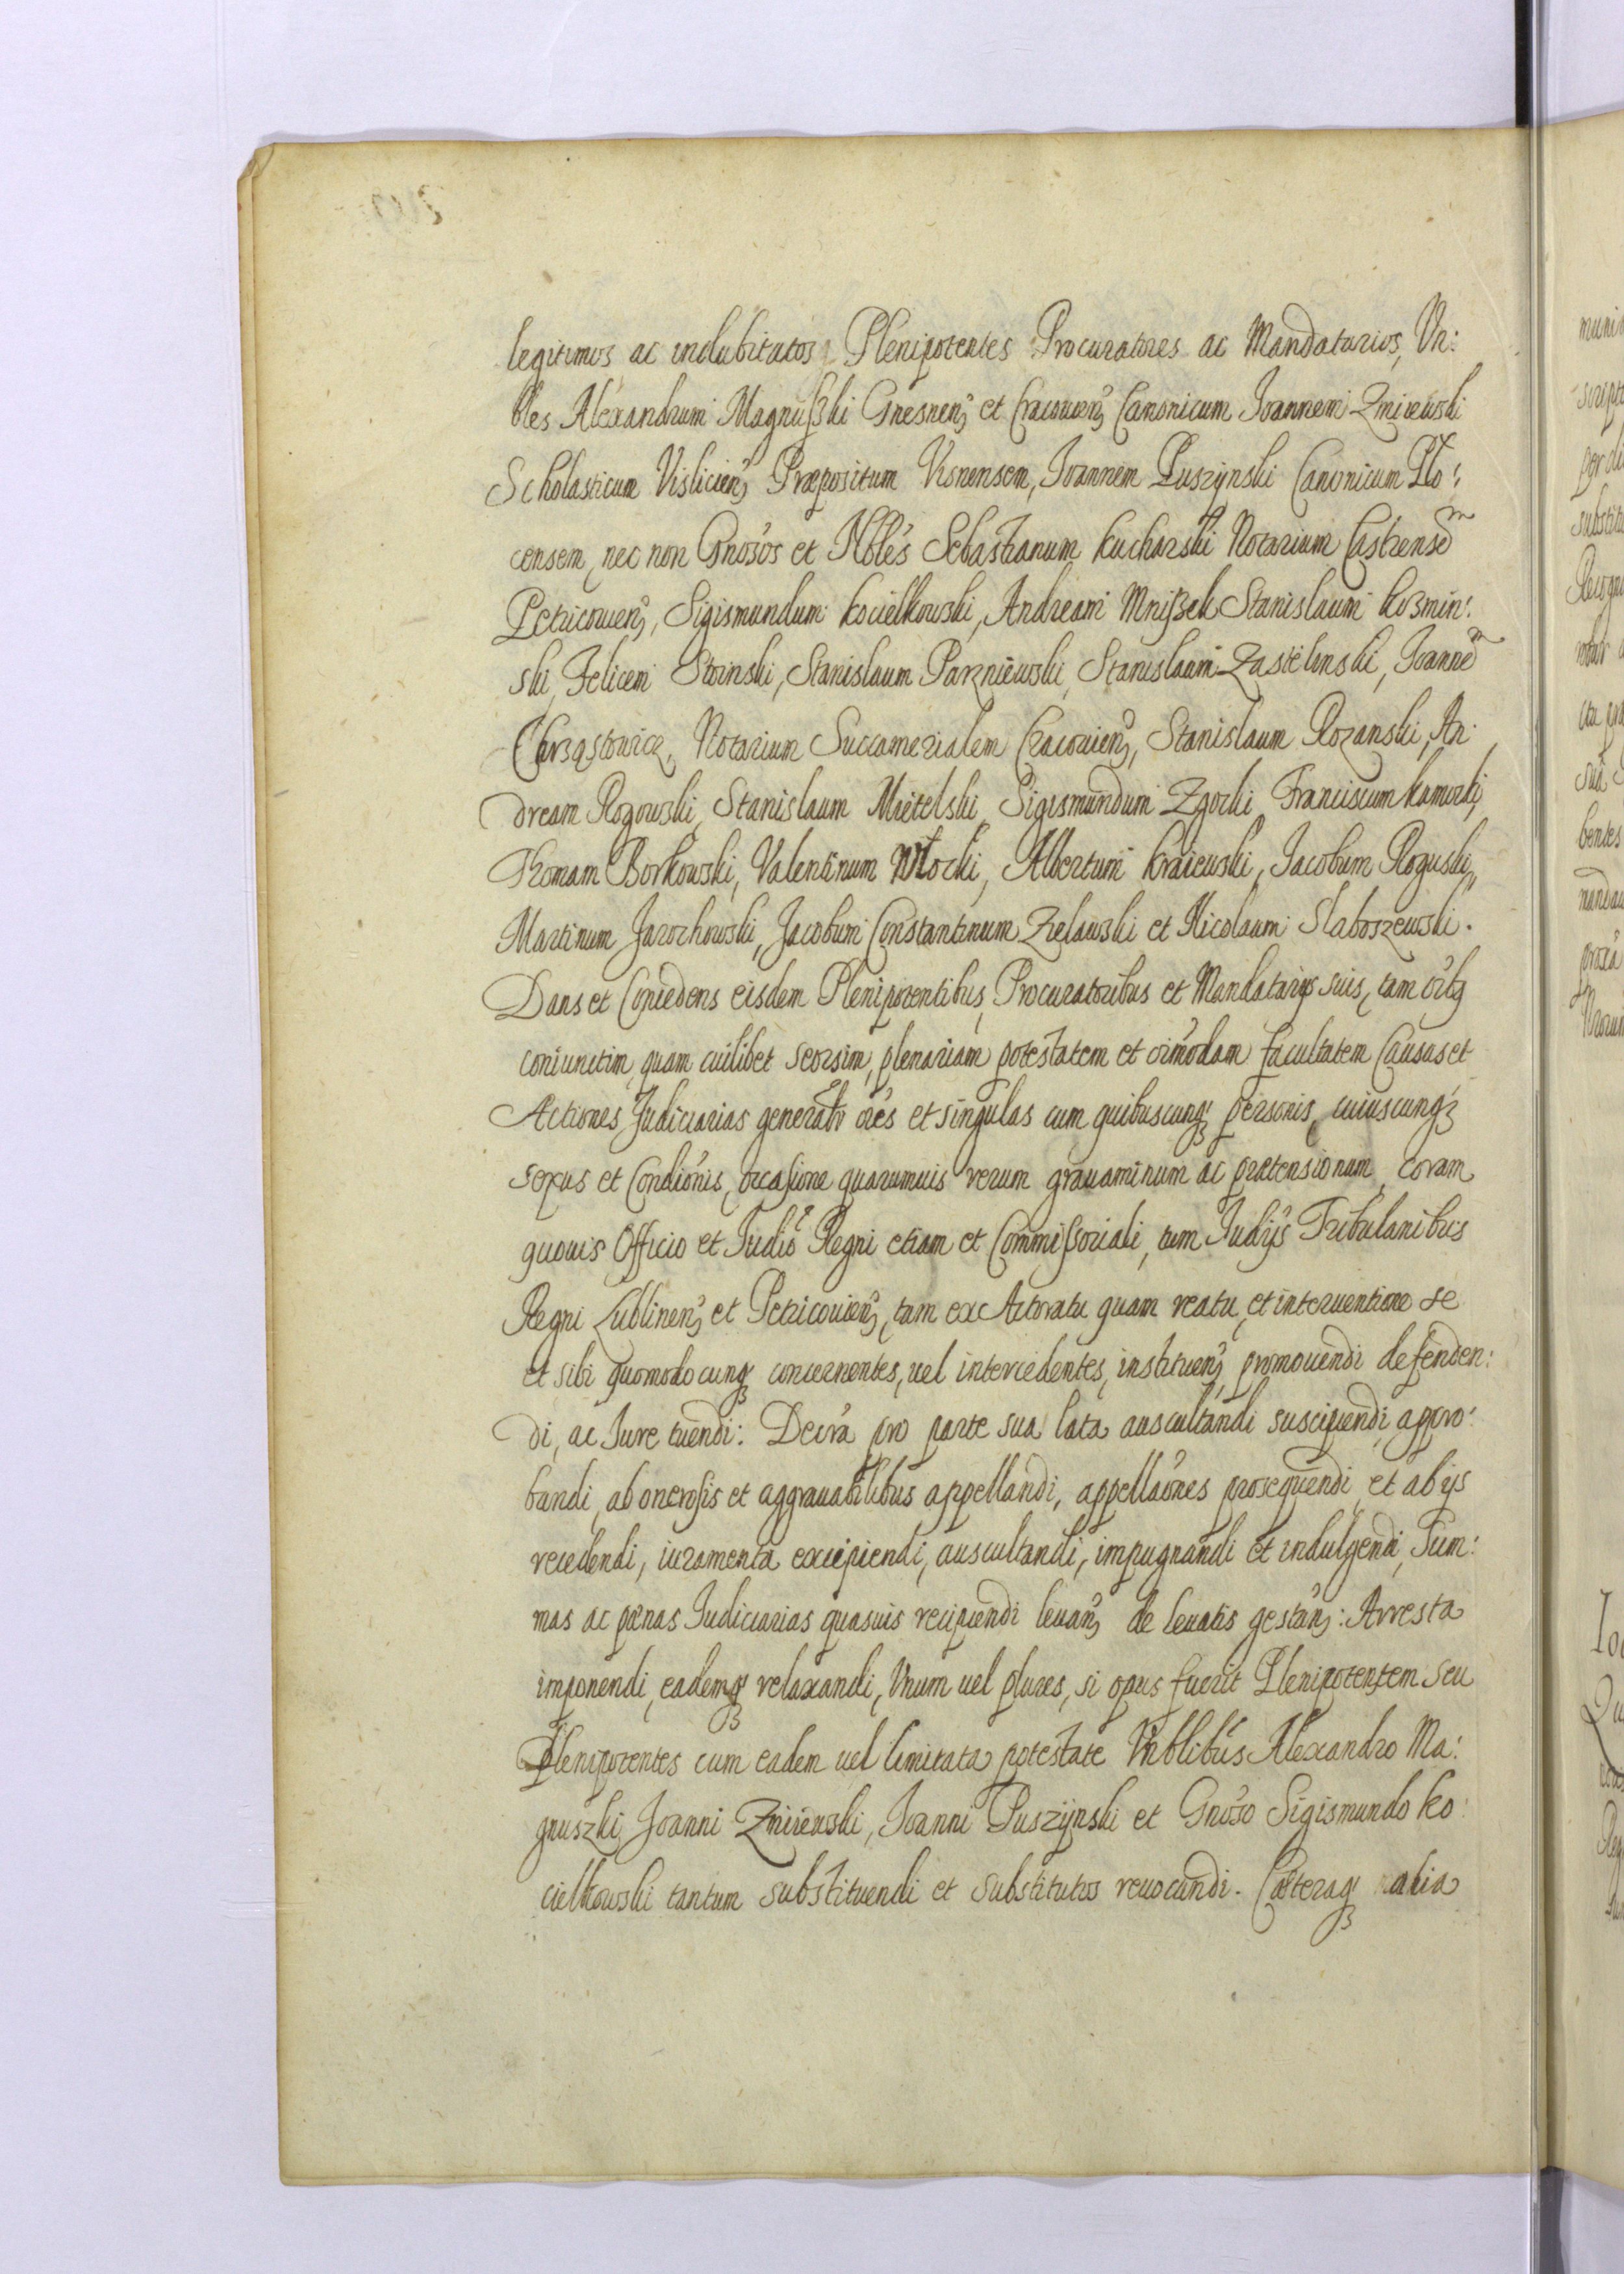 legitimos ac indubitatos Plenipotentes Procuratores ac Mandatarios, Vn:
bles Alexandrum Magnuſzki Gnesnenʒ et Cracouienʒ Canonicum Joannem Zmiiewski
Scholasticum Vislicienʒ Præpositum Visnensem, Joannem Puszynski Canonicum Plo:
censem, nec non Gnósos et Nblés Sebastianum Kucharski Notarium Castrensem
Petricouienʒ, Sigismundum Kocielkowski, Andream Mniſzek Stanislaum Kozmin:
ski, Felicem Stoinski, Stanislaum Parzniewski, Stanislaum Zastelinski, Joannem
Chrząstowicz, Notarium Succamerialem Cracouienʒ, Stanislaum Rozanski, An:
dream Rogowski, Stanislaum Mietelski, Sigismundum Zgocki, Franciscum Kamocki,
Thomam Borkowski, Valentinum Włocki, Albertum Kraiewski, Jacobum Roguski,
Martinum Jarochowski, Jacobum Constantinum Zielawski et Nicolaum Slaboszewski.
Dans et Concedens eisdem Plenipotentibus, Procuratoribus et Mandatarijs suis, tam óibq
coniunctim, quam cuilibet seorsim, plenariam potestatem et oimódam facultatem Causas et
Actiones Judiciarias generaltr óes et singulas cum quibuscunqʒ personis, cuiuscunqʒ
sexus et Condiónis, occasione quarumuis rerum grauaminum ac prætensionum, coram
quouis Officio et Judió Regni etiam et Commiſsoriali, tum Judijs Tribulanibus
Regni Lublinenʒ et Petricouienʒ, tam ex Actoratu quam reatu, et interuentione se
et sibi quomodocunqʒ concernentes, uel intercedentes, instituenʒ, promouendi defenden:
di, ac Jure tuendi: Decrá pro parte sua lata auscultandi suscipiendi, appro:
bandi, ab onerosis et aggrauabilibus appellandi, appellaónes prosequendi, et ab ijs
recedendi, iuramenta excipiendi, auscultandi, impugnandi et indulgendi, Sum:
mas ac pænas Judiciarias quasuis recipiendi leuanʒ de leuatis gestanʒ: Arresta
imponendi, eademqʒ relaxandi, Vnum uel plures, si opus fuerit Plenipotentem seu
Plenipotentes cum eadem uel limitata potestate Vnblibús Alexandro Ma:
gnuszki, Joanni Zmiiewski, Joanni Puszynski et Gnóso Sigismundo Ko:
cielkowski tantum substituendi et substitutos reuocandi. Cæteraqʒ alia